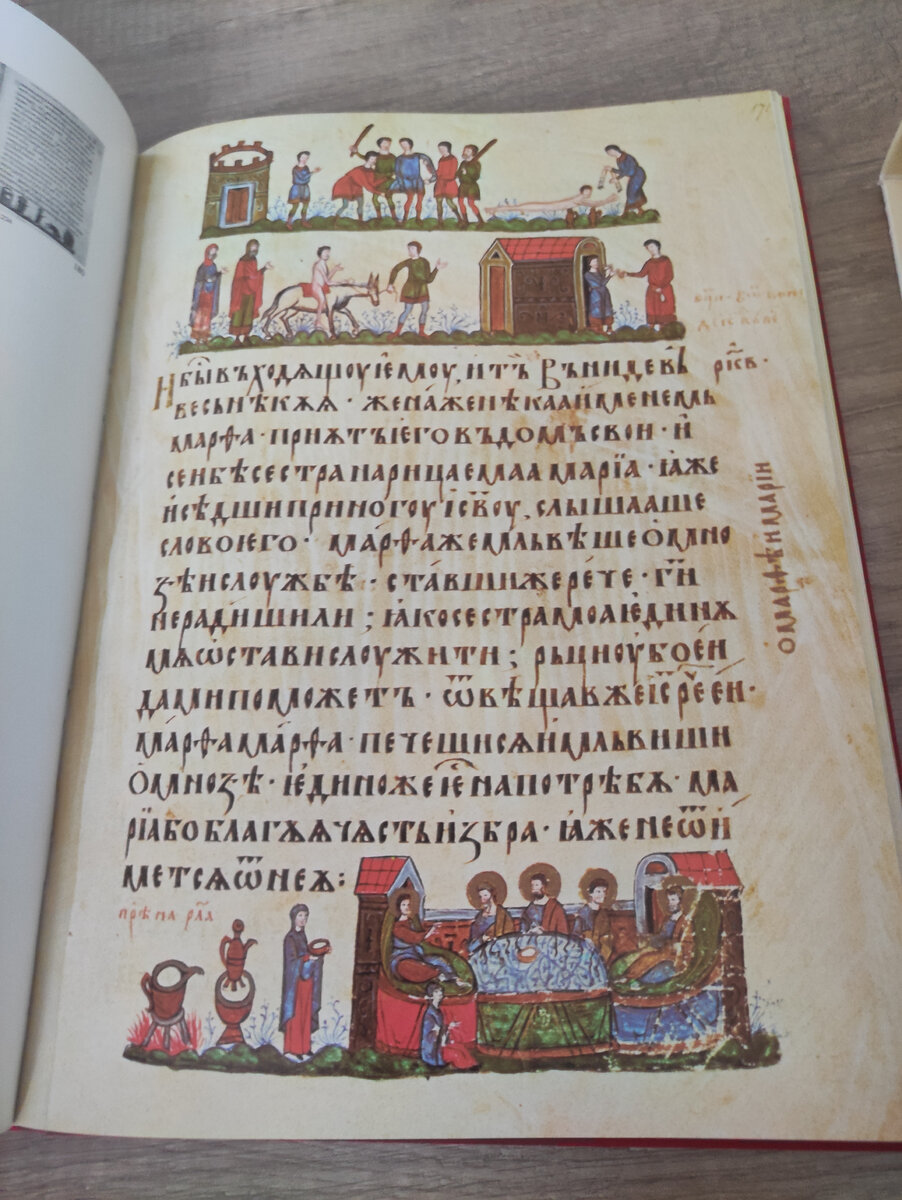 И бы́въ ходящоу іемоу, и тъ̀ вънидевъ ркв·
весь нѣкѫѫ· жена же нѣкаа и́менемь
марѳа· приѧтъ іего въ домъ свои· и́
сеи бѣ сестра нарицаемаа марїа· ꙗже
и́ сѣдши при ногоу іс҃воу, слышааше
слово іего· марѳа же млъвѣше о мно
зѣи слоужбѣ· ставши же рече· ги҃
не радиши ли; ꙗко сестра моа іединѫ
мѧ ѡстави слоужити; рьци оубо еи
да ми поможетъ· ѿвѣщав же іс҃ рече еи·
марѳа марѳа· печещисѧ и́ млъвиши
о мнозѣ· іедино же іе҃ на потрѣбѫ· ма
рїа бо благѫѫ чѧсть избра· ꙗже не ѿи́
метсѧ ѿ неѫ:
о марѳѣ и марїи